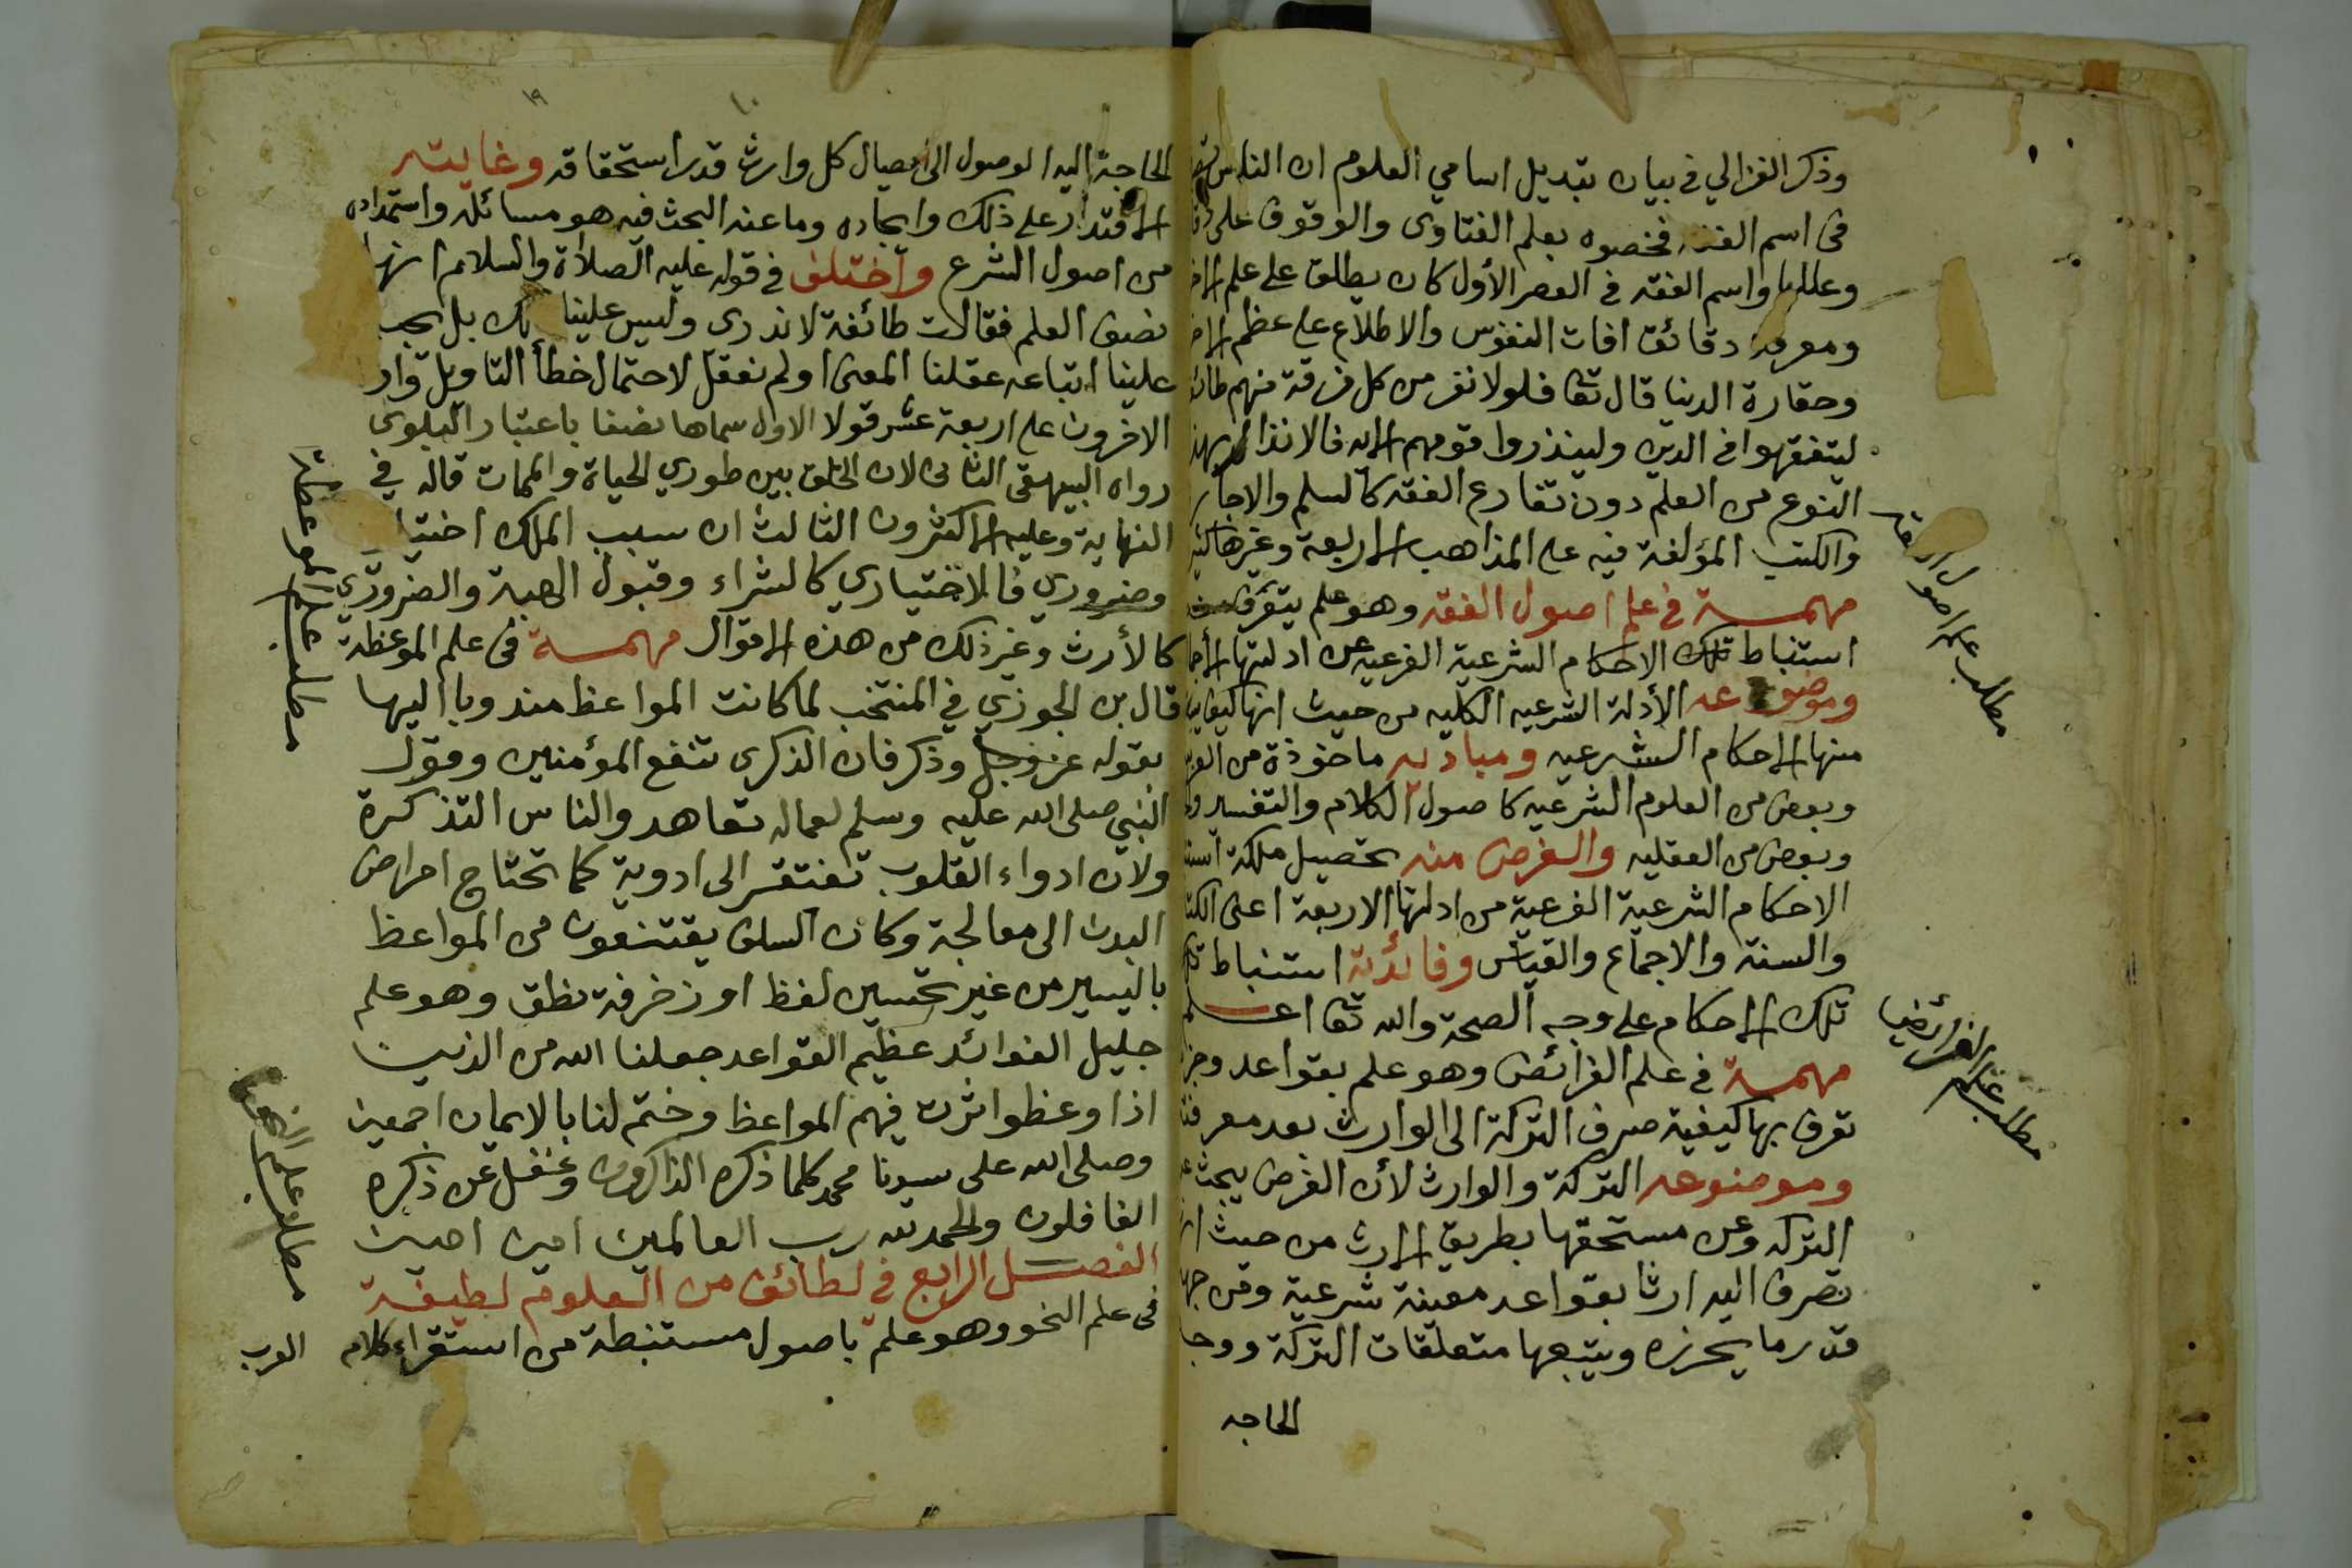 وذكر الغزالي في بيان تبديل اسامي العلوم ان الناس
في اسم الفقه فخصوه بعلم الفتاوى والوقوف على
وعللها واسم الفقه في العصر الأول كان يطلق على علم
ومعرفة دقائق افات النفوس والاطلاع على عظم
وحقارة الدنيا قال تعا فلولا نفر من كل فرقة منهم
ليتفقهوا في الدين ولينذروا قومهم الايه فالانذار بهذا
النوع من العلم دون تفارع الفقه كالسلم والاجار
والكتب المؤلفة فيه على المذاهب الاربعة وغيرها
مهمسة في علم اصول الفقه وهو علم يتعرف منه
استنباط تلك الاحكام الشرعية الفرعيه عن ادلتها
وموضوعه الأدلة الشرعيه الكليه من حيث انها كيف
منها الاحكام الشرعيه ومباديه ماخوذة من
وبعض من العلوم الشرعيه كاصول الكلام والتفسير
وبعض من العقليه والغرض منه تحصيل ملكة
الاحكام الشرعية الفرعية من ادلتها الاربعة اعنى
والسنة والاجماع والقياس وفائدته استنباط
تلك الاحكام على وجه الصحة والله تعا اعلم
مهمسة في علم الفرائض وهو علم بقواعد
تعرف بها كيفية صرف التركة الى الوارث بعد
وموضوعه التركة والوارث لأن الفرض يبحث
التركه وعن مستحقها بطريق الارث من حيث
تصرف اليه ارثا بقواعد معينة شرعية ومن
قدر ما يحرزه ويتبعها متعلقات التركة
الحاجه
مطلب علم اصول الفقه
مطلب علم الفرائض
١٩
١٠
الحاجة اليه الوصول الى ايصال كل وارث قدر استحقاقه وغايته
الاقتدار على ذلك وايجاده وما عنه البحث فيه هو مسائله واستمداده
من اصول الشرع واختلف في قوله عليه الصلاة والسلام انها
نصف العلم فقالت طائفة لا ندرى وليس علينا بل يجب
علينا اتباعه عقلنا المعنى او لم نعقل لاحتمال خطأ التاويل
الاخرون على اربعة عشر قولا الاول سماها نصفا باعتبار البلوى
رواه البيهقى الثانى لان الخلق بين طوري الحياة والممات قاله في
النهاية وعليه الاكثرون الثالث ان سبب الملك
وضروري فالاختياري كالشراء وقبول الهبة والضروري
كالأرث وغير ذلك من هذه الاقوال مهمسة في علم الموعظة
قال بن الجوزي في المنتخب لما كانت المواعظ مندوبا اليها
بقوله عز وجل وذكر فان الذكرى تنفع المؤمنين وقول
النبي صلى الله عليه وسلم لعماله تعاهدوا الناس التذكرة
ولان ادواء القلوب تفتقر الى ادوية كما تحتاج امراض
البدن الى معالجة وكان السلف يقتنعون من المواعظ
باليسير من غير تحسين لفظ او زخرفة نطق وهو علم
جليل الفوائد عظيم القواعد جعلنا الله من الذين
اذا وعظوا اثرت فيهم المواعظ وختم لنا بالايمان اجمعين
وصلى الله على سيدنا محمد كلما ذكره الذاكرون وغفل عن ذكره
الغافلون والحمد لله رب العالمين امين امين
الفصل الرابع في لطائف من العلوم لطيفة
في علم النحو وهو علم باصول مستنبطة من استقراء كلام
العرب
مطلب علم الموعظة
مطلب علم النحو